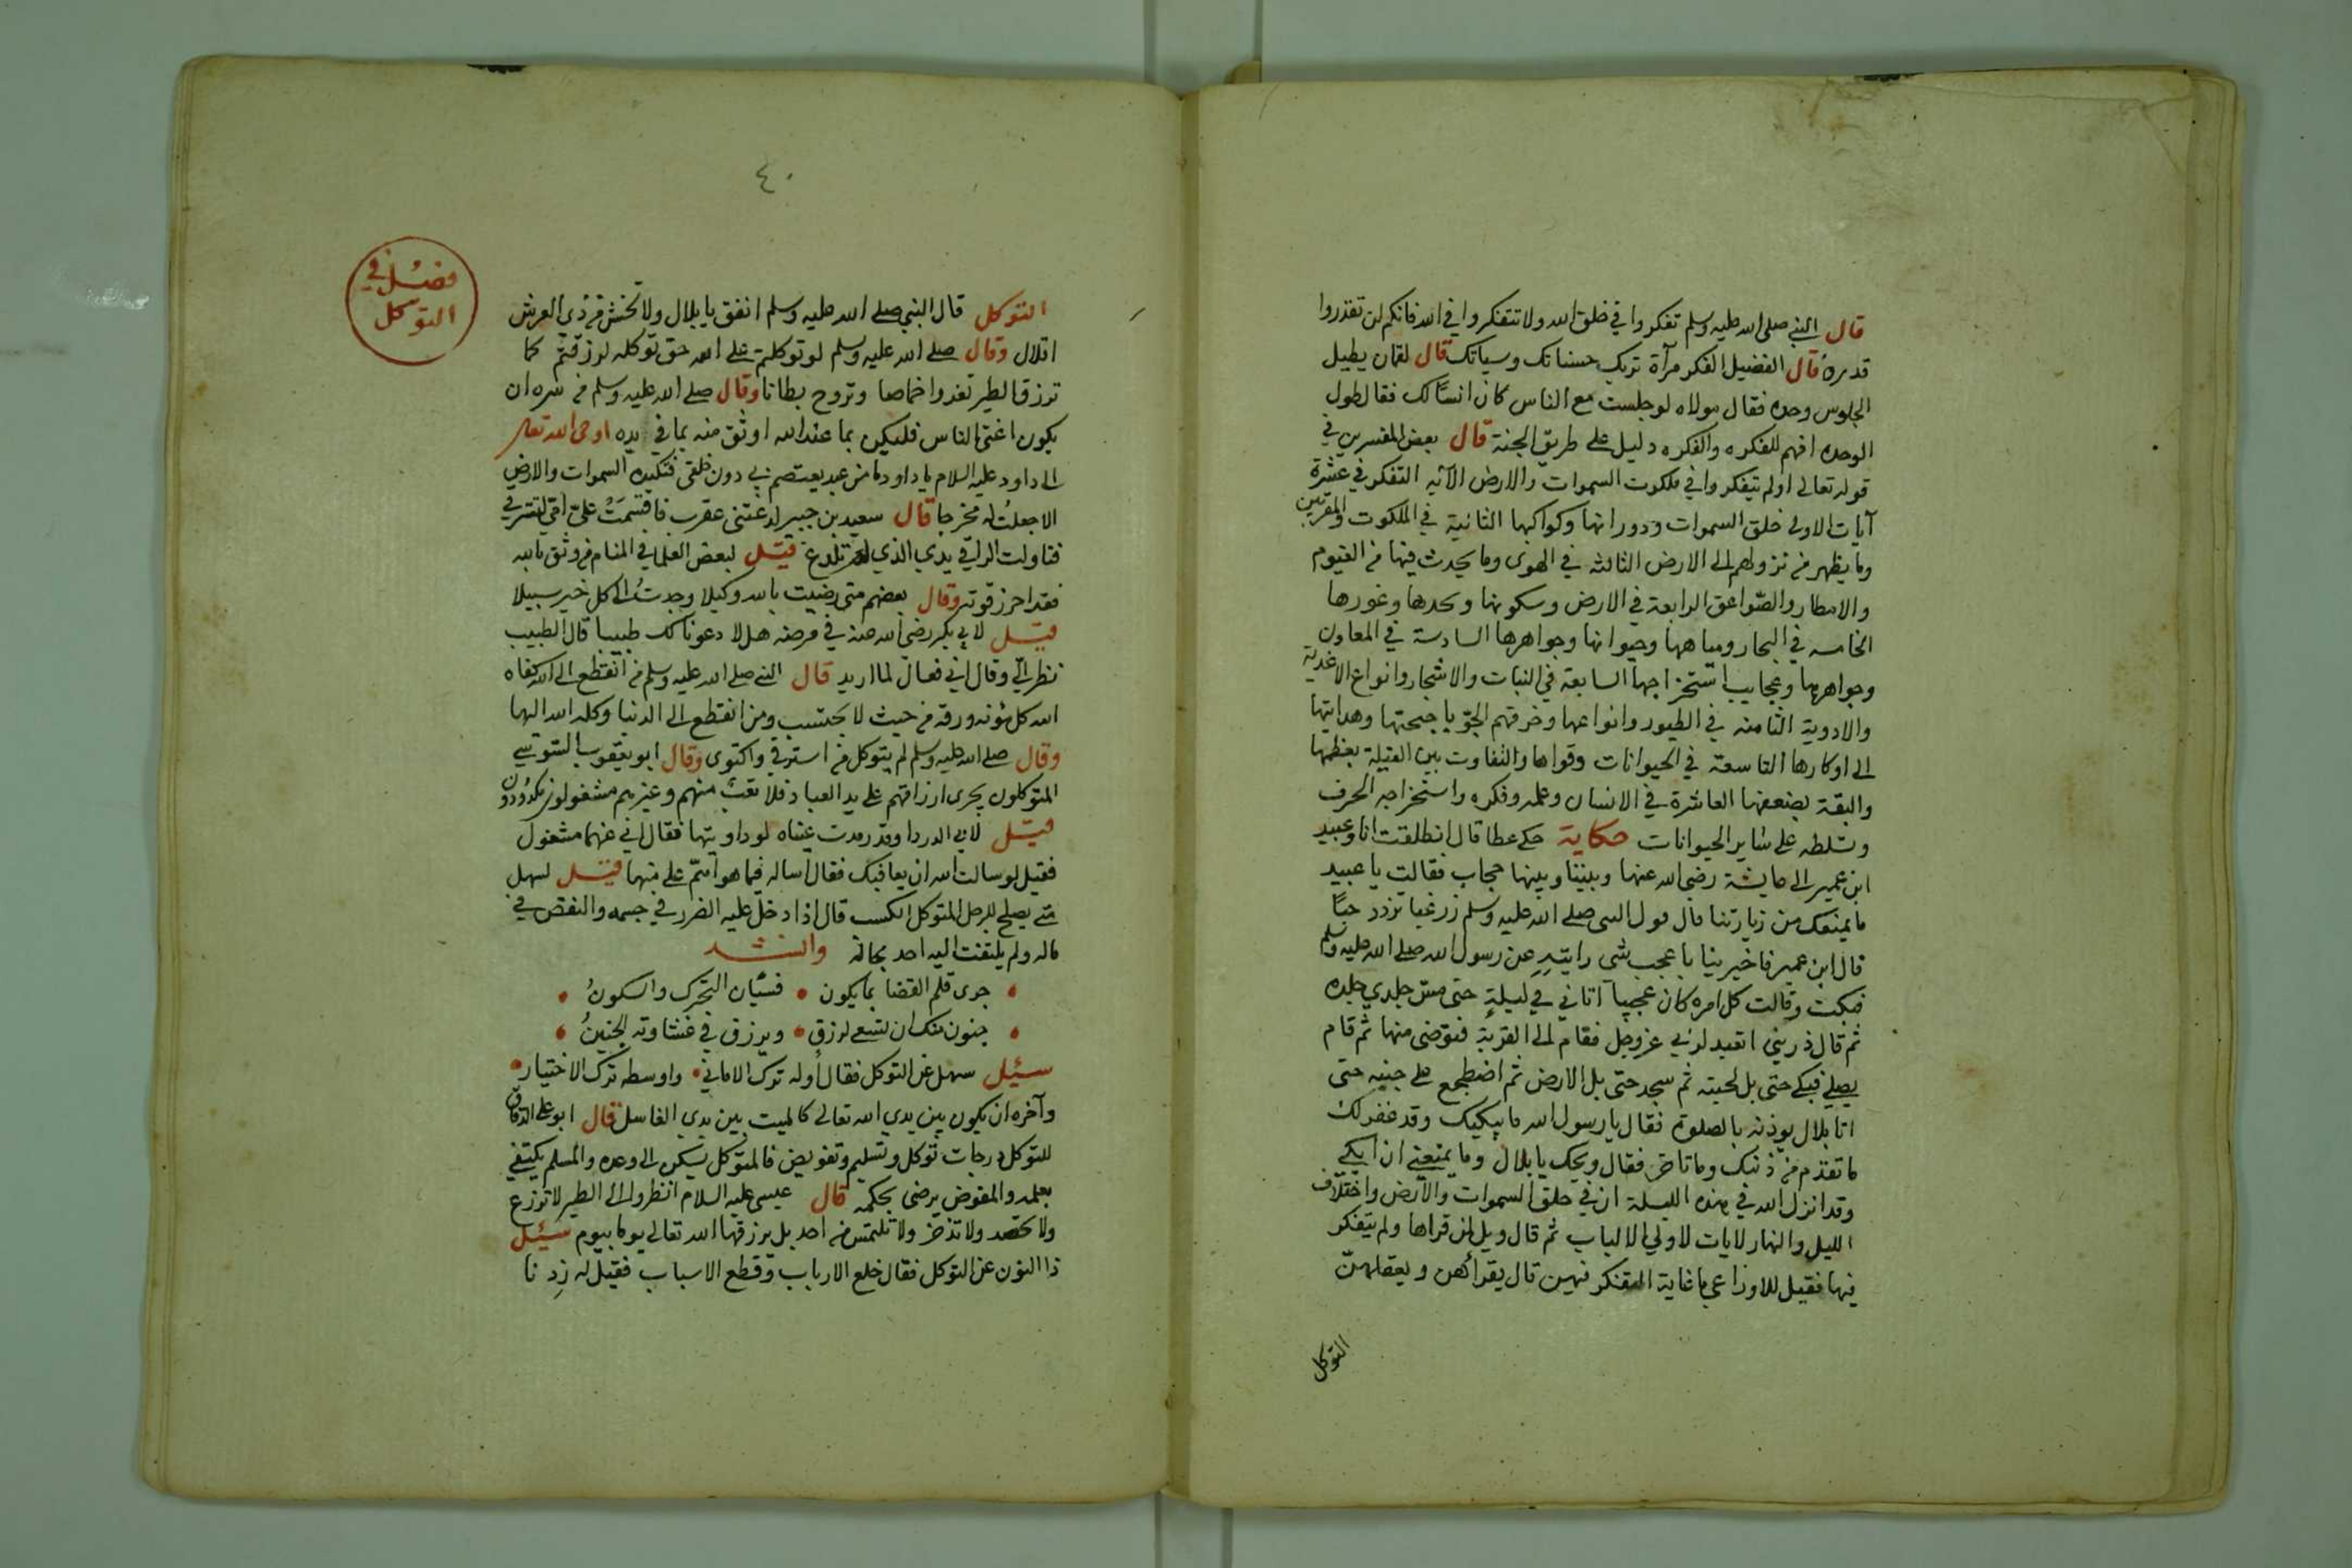 قال النبي صلى الله عليه وسلم تفكروا في خلق الله ولا تتفكروا في الله فانكم لن تقدروا
قدره قال الفضيل الفكر مرآة تريك حسناتك وسياتك قال لقمان يطيل
الجلوس وحده فقال مولاه لو جلست مع الناس كان انسًا لك فقال طول
الوحده افهم للفكره والفكره دليل على طريق الجنة قال بعض المفسرين في
قوله تعالى اولم يتفكروا في ملكوت السموات والارض الآيه التفكر في عشرة
آيات الاولى خلق السموات ودورانها وكواكبها الثانية في الملكوت والمقربين
وما يظهر من نزولهم الى الارض الثالثه في الهوى وما يحدث فيها من الغيوم
والامطار والصّواعق الرابعة في الارض وسكونها وغورها
الخامسه في البحار ومياهها وحيوانها وجواهرها السادسة في المعادن
وجواهرها وعجايب استخراجها السابعة في النبات والاشجار وانواع الاغدية
والادوية الثامنه في الطيور وانواعها وخرقهم الجوّ باجنحتها وهدايتها
الى اوكارها التاسعة في الحيوانات وقواها والتفاوت بين الفيلة بعظمها
والبقة بضعفها العاشرة في الانسان وعلمه وفكره واستخراجه الحرف
وتسلطه على ساير الحيوانات حكاية حكى عطا قال انطلقت انا وعبيد
ابن عمير الى عايشة رضي الله عنها وبيننا وبينها حجاب فقالت يا عبيد
ما يمنعك من زيارتنا قال قول النبي صلى الله عليه وسلم زر غبا تزدد حبًا
قال ابن عمير فاخبرينا باعجب شى رايتيه عن رسول الله صلى الله عليه وسلم
فبكت وقالت كل امره كان عجيبا أتاني في ليلةٍ حتى مسّ جلدي جلده
ثم قال ذريني اتعبد لربي عز وجل فقام الى القربة فتوضى منها ثم قام
يصلي فبكى حتى بل لحيته ثم سجد حتى بل الارض ثم اضطجع على جنبه حتى
اتا بلال يوذنه بالصلوة فقال يا رسول الله ما يبكيك وقد غفر لك
ما تقدّم من ذنبك وما تاخر فقال ويحك يا بلال وما يمنعني ان ابكي
وقد انزل الله في هذه الليلة ان في خلق السموات والأرض واختلاف
الليل والنهار لايات لاولي الالباب ثم قال ويل لمن قراها ولم يتفكر
فيها فقيل للاوزاعي ما غاية التفكر فيهن قال يقرأهن ويعقلهنّ
التوكل
٤٠
فصل في
التوكل
التوكل قال النبي صلى الله عليه وسلم انفق يا بلال ولا تخش من ذي العرش
اقلال وقال صلى الله عليه وسلم لو توكلتم على الله حق توكله لرزقتم كما
ترزق الطير تغدوا خماصا وتروح بطانا وقال صلى الله عليه وسلم من سره ان
يكون اغنى الناس فليكن بما عند الله اوثق منه بما في يده اوحى الله تعالى
الى داود عليه السلام يا داود ما من عبد يعتصم بي دون خلقى فتكيده السموات والارض
الا جعلت له مخرجا قال سعيد بن جبير لدغتنى عقرب فاقسمت علىّ امّي لتسترقي
فناولت الراقي يدي الذي لم تلدغ قيل لبعض العلما في المنام من وثق بالله
فقد احرز قوته وقال بعضهم متى رضيت بالله وكيلا وجدتُ الى كل خير سبيلا
قيل لابي بكر رضي الله عنه في مرضه هلا دعونا لك طبيبا قال الطبيب
نظر اليّ وقال اني فعال لما اريد قال النبي صلى الله عليه وسلم من انقطع الى الله كفاه
الله كل مؤنه ورزقه من حيث لا يحتسب ومن انقطع الى الدنيا وكله الله اليها
وقال صلى الله عليه وسلم لم يتوكل من استرقي واكتوى وقال ابو يعقوب السوسي
المتوكلون يجرى ارزاقهم على يد العباد فلا تعب منهم وغيرهم مشغولون مكدودون
قيل لابي الدردا وقد رمدت عيناه لو داويتها فقال اني عنهما مشغول
فقيل لو سالت الله ان يعافيك فقال أساله فيما هو اهمّ على منهما قيل لسهل
متى يصلح للرجل المتوكل الكسب قال اذا دخل عليه الضرر في جسمه والنقص في
ماله ولم يلتفت اليه احد بحاله وانشد
جرى قلم القضا بما يكون • فسيّان التحرك والسكونُ
جنون منك ان تسعى لرزق • ويرزق في غشاوته الجنينُ
سئل سهل عن التوكل فقال أوله ترك الاماني • واوسطه ترك الاختيار •
وآخره ان يكون بين يدي الله تعالى كالميت بين يدي الغاسل قال ابو على الدقاق
للتوكل درجات توكل وتسليم وتفويض فالمتوكل يسكن الى وعده والمسلم يكتفي
بعلمه والمفوض يرضى بحكمه قال عيسى عليه السلام انظروا الى الطير لا تزرع
ولا تحصد ولا تدّخر ولا تلتمس من احد بل يرزقها الله تعالى يوما بيوم سئل
ذا النون عن التوكل فقال خلع الارباب وقطع الاسباب فقيل له زدنا